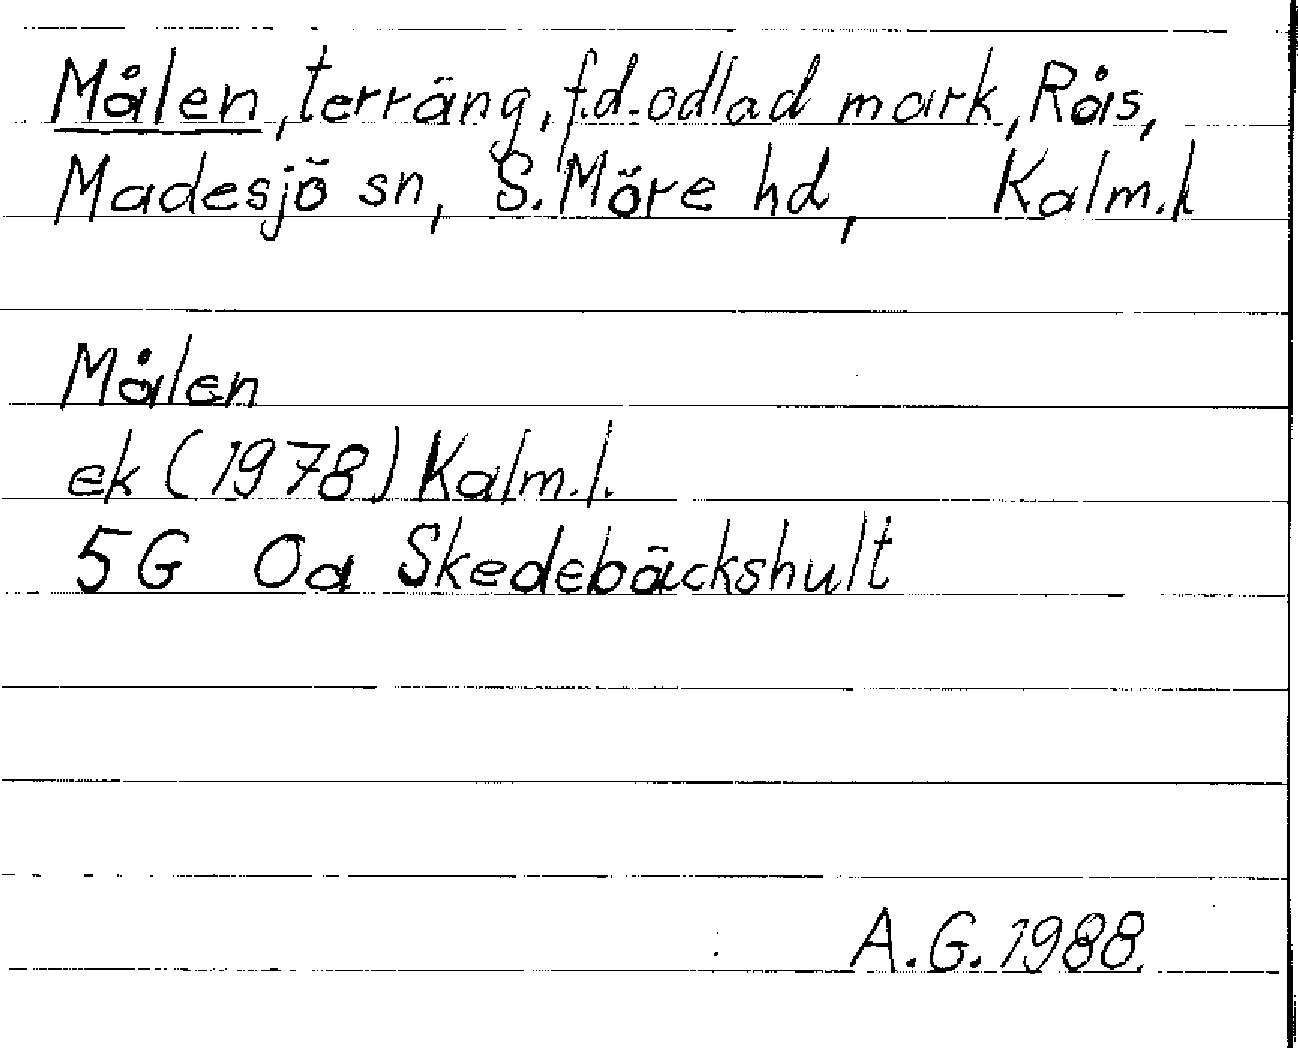 Målen, terräng, f.d. odlad mark, Rås,
Madesjö sn, S. Möre hd, Kalm. l
Målen
ek (1978) Kalm. l.
5G 0a Skedebäckshult
A.G. 1988.